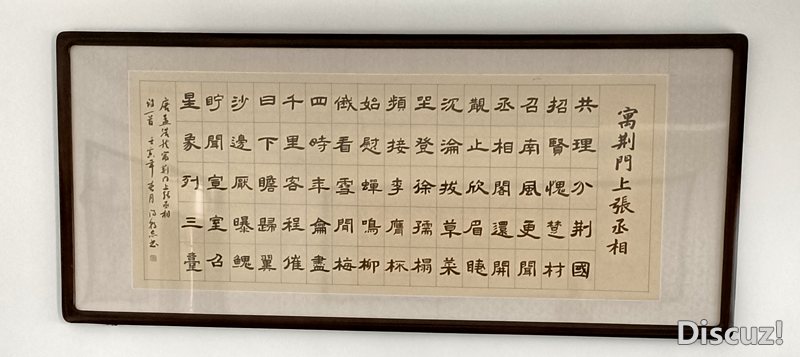 寓荆門上張丞相
共理分荆國
招賢愧楚材
召南風更聞
丞相閣還開
觀止欣眉睫
沉淪拔草萊
坐登徐孺榻
頻接李膺杯
始慰蟬鳴柳
俄看雪間梅
四時年籥盡
千里客程催
日下瞻歸翼
沙邊厭曝鰓
貯聞宣室召
星象列三臺
唐孟浩然寓荆門上張丞相
詩一首 壬寅年 月 書
Discuz!